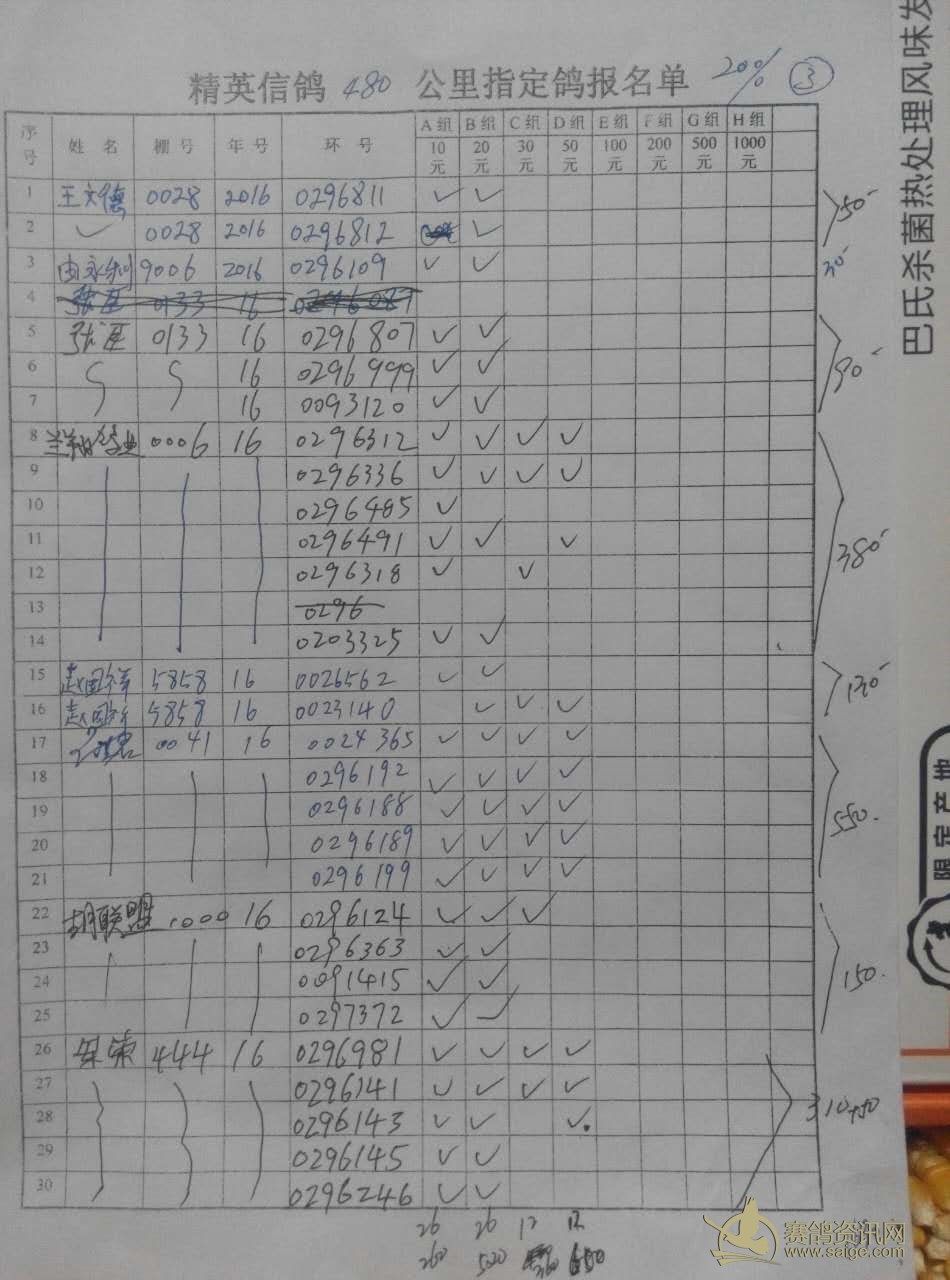 精英信鸽 480 公里指定鸽报名单 20% ③
序号 姓名 棚号 年号 环号 A组10元 B组20元 C组30元 D组50元 E组100元 F组200元 G组500元 H组1000元
1 王文德 0028 2016 0296811 ✓ ✓
2 ✓ 0028 2016 0296812 ✓
50
3 由永利 9006 2016 0296109 ✓ ✓
30
4 0133 16
5 0133 16 0296807 ✓ ✓
6 16 0296999 ✓ ✓
7 16 0093120 ✓ ✓
90
8 0006 16 0296312 ✓ ✓ ✓ ✓
9 0296336 ✓ ✓ ✓ ✓
10 0296485 ✓
11 0296491 ✓ ✓ ✓
12 0296318 ✓ ✓
13 0296
14 0203325 ✓ ✓
380
15 赵国祥 5858 16 0026562 ✓ ✓
16 赵国祥 5858 16 0023140 ✓ ✓ ✓
130
17 0041 16 0024365 ✓ ✓ ✓ ✓
18 0296192 ✓ ✓ ✓ ✓
19 0296188 ✓ ✓ ✓ ✓
20 0296189 ✓ ✓ ✓ ✓
21 0296199 ✓ ✓ ✓ ✓
550
22 胡联盟 0000 16 0296124 ✓ ✓ ✓
23 0296363 ✓ ✓
24 0091415 ✓ ✓
25 0297372 ✓ ✓
150
26 444 16 0296981 ✓ ✓ ✓ ✓
27 0296141 ✓ ✓ ✓ ✓
28 0296143 ✓ ✓ ✓
29 0296145 ✓ ✓
30 0296246 ✓ ✓
310+50
26 26 12
260 520
巴氏杀菌热处理风味发
限定产地
赛鸽资讯网
www.saige.com